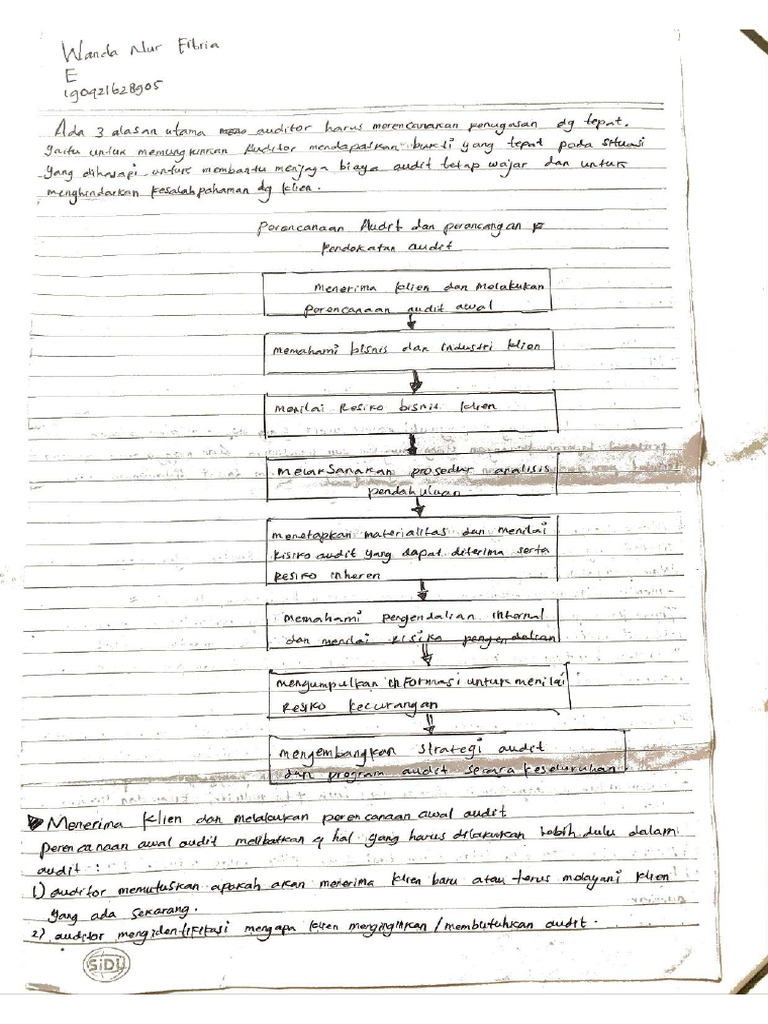 Wanda Nur Fibria
E
190921628905
Ada 3 alasan utama auditor harus merencanakan penugasan dg tepat.
yaitu untuk memungkinkan Auditor mendapatkan bukti yang tepat pada situasi
yang dihadapi untuk membantu menjaga biaya audit tetap wajar dan untuk
menghindarkan kesalahpahaman dg klien.
Perencanaan Audit dan perancangan
Pendekatan audit
menerima klien dan melakukan
perencanaan audit awal
memahami bisnis dan industri klien
menilai Resiko bisnis klien
melaksanakan prosedur analisis
pendahuluan
menetapkan materialitas dan menilai
Risiko audit yang dapat diterima serta
Resiko inheren
memahami pengendalian internal
dan menilai Risiko pengendalian
mengumpulkan informasi untuk menilai
Resiko kecurangan
mengembangkan strategi audit
dan program audit secara keseluruhan
Menerima klien dan melakukan perencanaan awal audit
perencanaan awal audit melibatkan 4 hal yang harus dilakukan lebih dulu dalam
audit :
1) auditor memutuskan apakah akan menerima klien baru atau terus melayani klien
yang ada sekarang.
2) auditor mengidentifikasi mengapa klien menginginkan/membutuhkan audit.
SiDU